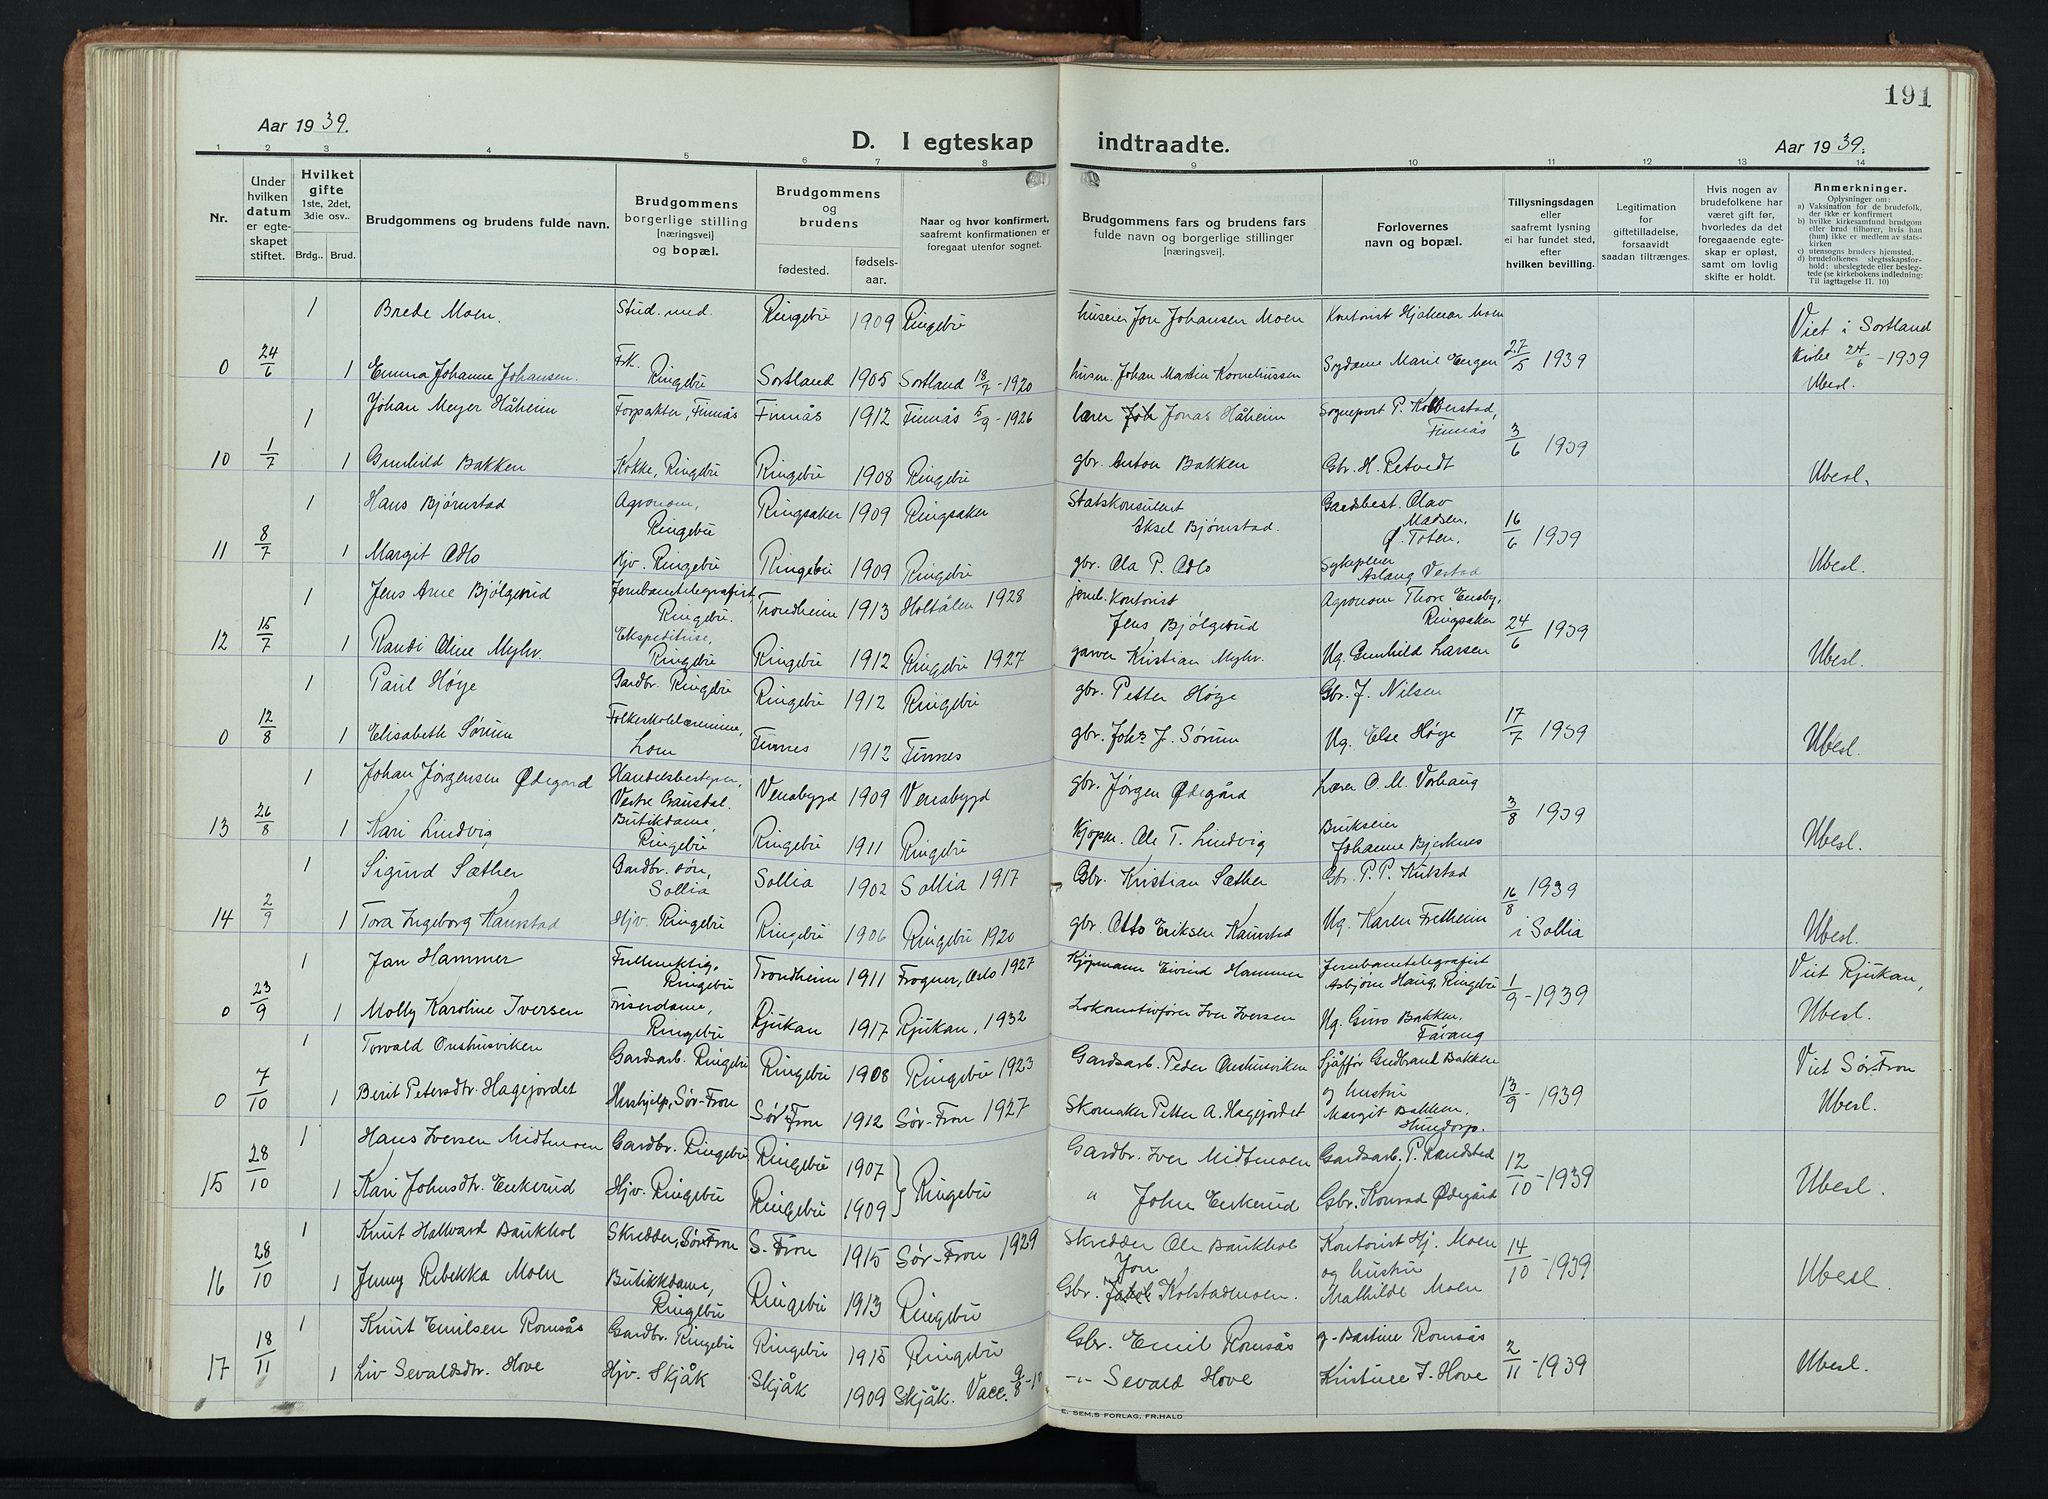 191
Aar 1939.
D. I egteskap indtraadte.
Aar 1939.
1 2 3 4 5 6 7 8 9 10 11 12 13 14
Nr.
Under hvilken datum er egteskapet stiftet.
Hvilket gifte 1ste, 2det, 3die osv..
Brdg.. Brud.
Brudgommens og brudens fulde navn.
Brudgommens borgerlige stilling [næringsvei] og bopæl.
Brudgommens og brudens
fødested. fødsels-aar.
Naar og hvor konfirmert, saafremt konfirmationen er foregaat utenfor sognet.
Brudgommens fars og brudens fars fulde navn og borgerlige stillinger [næringsvei].
Forlovernes navn og bopæl.
Tillysningsdagen eller saafremt lysning ei har fundet sted, efter hvilken bevilling.
Legitimation for giftetilladelse, forsaavidt saadan tiltrænges.
Hvis nogen av brudefolkene har været gift før, hvorledes da det foregaaende egteskap er opløst, samt om lovlig skifte er holdt.
Anmerkninger.
Oplysninger om:
a) Vaksination for de brudefolk, der ikke er konfirmert
b) hvilke kirkesamfund brudgom eller brud tilhører, hvis han (hun) ikke er medlem av statskirken
c) utensogns bruders hjemsted.
d) brudefolkenes slegtsskapsforhold: ubeslegtede eller beslegtede (se kirkebokens indledning: Til iagttagelse II. 10)
1 Brede Moen. Stud. med. Ringebu 1909 Ringebu huseier Jon Johansen Moen Kontorist Hjalmar Moen Viet i Sortland
0 24/6 1 Emma Johanne Johansen. Frk. Ringebu Sortland 1905 Sortland 18/7-1920 Johan Martin Korneliussen Sydame Marie Engen 27/5 1939 Kirke 24/6-1939 Ubesl.
1 Johan Meyer Håheim Forpakter, Finnås Finnås 1912 Finnås 5/9-1926 lærer Jonas Håheim Sogneprest P. Kolberstad, Finnås
10 1/7 1 Gunhild Bakken Kokke, Ringebu Ringebu 1908 Ringebu gbr. Anton Bakken Gbr. H. Retvedt 3/6 1939 Ubesl.
1 Hans Bjørnstad Agronom, Ringebu Ringsaker 1909 Ringsaker Statskonsulent Aksel Bjørnstad. Gardsbest. Olav Madsen, Ø. Toten.
11 8/7 1 Margit Odlo Hjv. Ringebu Ringebu 1909 Ringebu gbr. Ola P. Odlo Sykepleier Aslaug Vestad 16/6 1939 Ubesl.
1 Jens Arne Bjølgerud Jernbanetelegrafist, Ringebu. Trondheim 1913 Holtålen 1928 jernb. Kontorist Jens Bjølgerud Agronom Thore Ensby, Ringsaker
12 15/7 1 Randi Oline Myhr. Ekspeditrise, Ringebu Ringebu 1912 Ringebu 1927 garver Kristian Myhr. Ug. Gunhild Larsen 24/6 1939 Ubesl.
1 Paul Høye Gardbr. Ringebu Ringebu 1912 Ringebu gbr. Petter Høye Gbr. J. Nilsen
0 12/8 1 Elisabeth Sørum Folkeskolelærerinne, Lom Finnes 1912 Finnes gbr. Johs J. Sørum Ug. Else Høye 17/7 1939 Ubesl.
1 Johan Jørgensen Ødegård Handelsbestyrer, Vestre Gausdal. Venabygd 1909 Venabygd gbr. Jørgen Ødegård Lærer O. M. Vorhaug
13 26/8 1 Kari Lindvig Butikdame, Ringebu Ringebu 1911 Ringebu Kjøpm. Ole T. Lindvig Brukseier Johanne Bjerknes 3/8 1939 Ubesl.
1 Sigurd Sæther Gardbr. søn, Sollia Sollia 1902 Sollia 1917 Gbr. Kristian Sæther Gbr. P. P. Kulstad
14 2/9 1 Tora Ingeborg Kanstad Hjv. Ringebu Ringebu 1906 Ringebu 1920 gbr. Otto Eriksen Kanstad Ug. Karen Fretheim 16/8 1939 i Sollia Ubesl.
1 Jan Hammer Fullmektig, Ringebu Trondheim 1911 Frogner, Oslo 1927 Kjøpmann Eivind Hammer Jernbanetelegrafist Asbjørn Haug, Ringebu Viet Rjukan,
0 23/9 1 Molly Karoline Iversen Friserdame, Ringebu Rjukan 1917 Rjukan, 1932 Lokomotivfører Iver Iversen Ug. Guro Bakken, Fåvang 1/9-1939 Ubesl.
1 Torvald Onshusviken Gardsarb. Ringebu Ringebu 1908 Ringebu 1923 Gardsarb. Peder Onshusviken Sjåffør Gudbrand Bakken Viet Sør-Fron
0 7/10 1 Berit Petersdtr. Hagejordet Hushjelp, Sør-Fron Sør-Fron 1912 Sør-Fron 1927 Skomaker Petter A. Hagejordet og hustru Margit Bakken, Hundorp. 13/9-1939 Ubesl.
1 Hans Iversen Midtmoen Gardbr. Ringebu Ringebu 1907 Ringebu Gardbr. Iver Midtmoen Gardsarb. P. Randstad
15 28/10 1 Kari Johnsdtr. Enkerud Hjv. Ringebu Ringebu 1909 " John Enkerud Gsbr. Konrad Ødegård 12/10-1939 Ubesl.
1 Knut Hallvard Baukhol Skredder, Sør-Fron S. Fron 1915 Sør-Fron 1929 Skredder Ole Baukhol Kontorist Hj. Moen
16 28/10 1 Jenny Rebekka Moen Butikkdame, Ringebu Ringebu 1913 Ringebu Gbr. Jon Kolstadmoen. og hustru Mathilde Moen 14/10-1939 Ubesl.
1 Knut Emilsen Romsås Gardbr. Ringebu Ringebu 1915 Ringebu Gsbr. Emil Romsås g. Bastine Romsås
17 18/11 1 Liv Sevaldsdtr. Hove Hjv. Skjåk Skjåk 1909 Skjåk. Vacc. 9/8 -"- Sevald Hove Kristine J. Hove 2/11-1939 Ubesl.
E. SEM,S FORLAG, FR.HALD